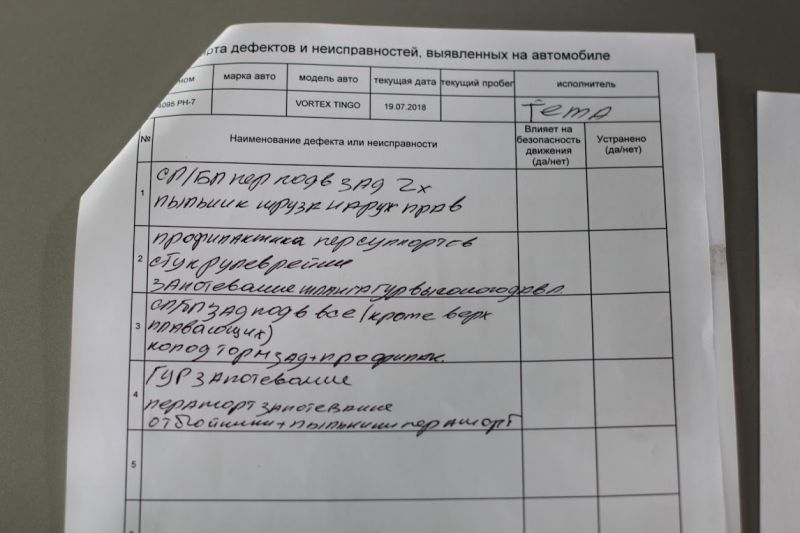 рта дефектов и неисправностей, выявленных на автомобиле
ном марка авто модель авто текущая дата текущий пробег исполнитель
4095 РН-7 VORTEX TINGO 19.07.2018 Тема
№ Наименование дефекта или неисправности Влияет на безопасность движения (да/нет) Устранено (да/нет)
1 СР/БЛ пер подв зад 2х
пыльник шруза наруж прав
2 профилактика пер суппортов
стук рулев рейки
запотевание шланга ГУР высокого давл.
3 СР/БЛ зад подв все (кроме верх
плавающих)
колод торм зад + профилак.
4 ГУР запотевание
пер аморт запотевание
отбойники + пыльники пер аморт
5